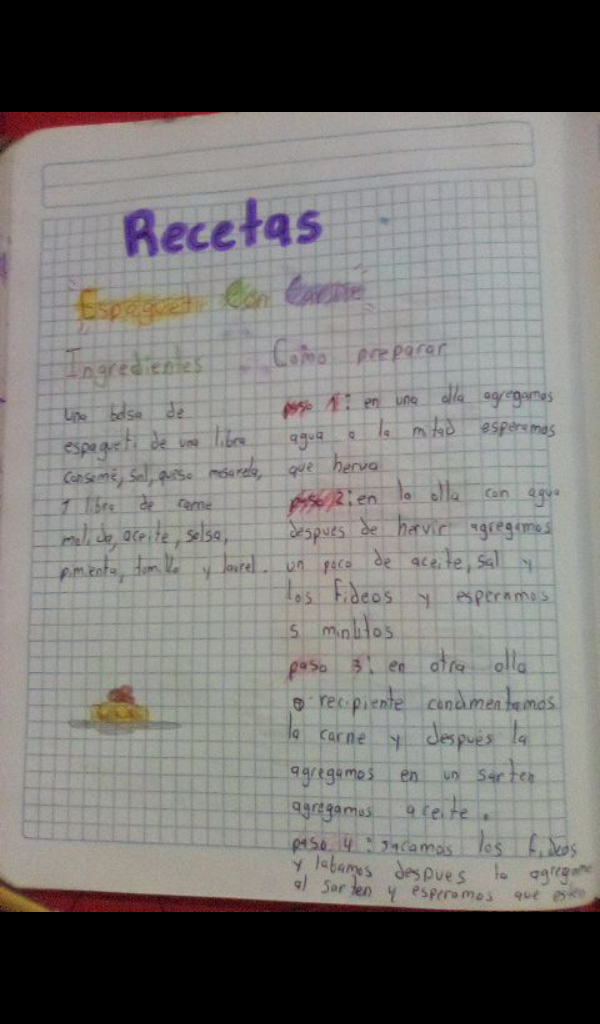 Recetas
"Espagueti Con Carne"
Ingredientes
una bolsa de
espagueti de una libra
consomé, sal, queso mosarela,
1 libra de carne
molida, aceite, salsa,
pimenta, tomillo y laurel.
Como preparar
paso 1: en una olla agregamos
agua a la mitad esperamos
que herva
paso 2: en la olla con agua
despues de hervir agregamos
un poco de aceite, sal y
los fideos y esperamos
5 minutos
paso 3: en otra olla
o recipiente condmentamos
la carne y después la
agregamos en un sarten
agregamos aceite.
paso 4: sacamos los fideos
y labamos despues lo agregamos
al sarten y esperamos que